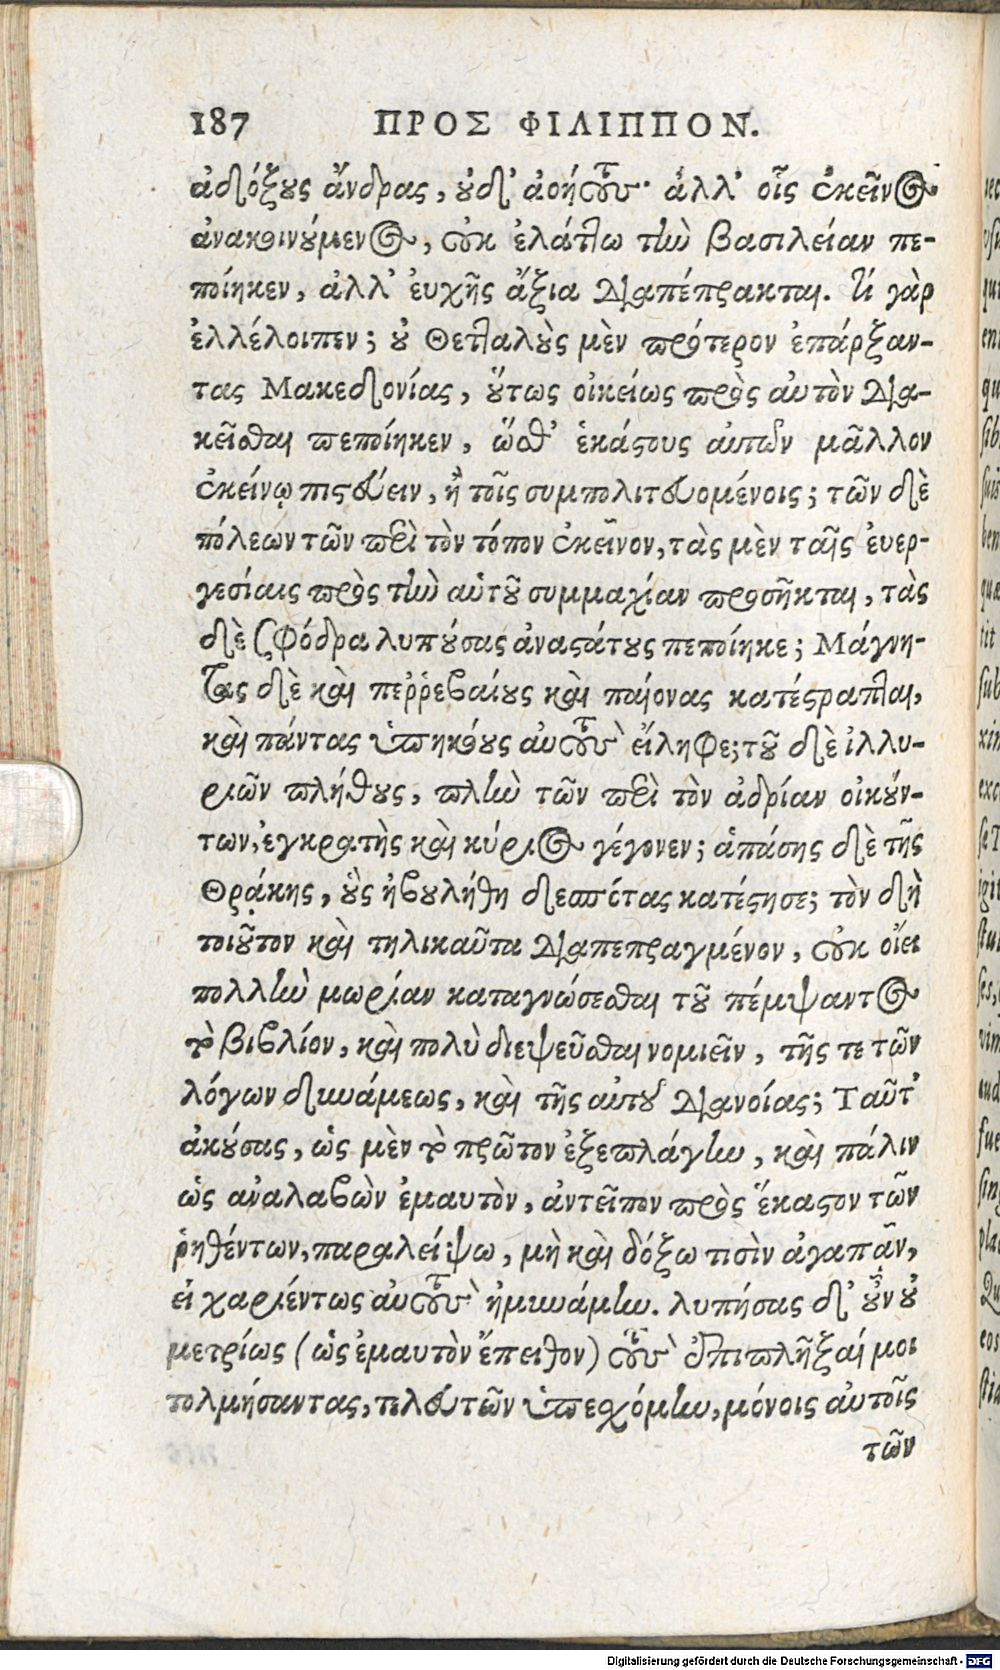 187 ΠΡΟΣ ΦΙΛΙΠΠΟΝ.
ἀδόξους ἄνδρας, οὐδ' ἀνοήτους· ἀλλ' οἷς ἐκεῖνος
ἀνακοινούμενος, οὐκ ἐλάττω τὴν βασιλείαν πε-
ποίηκεν, ἀλλ' ἐυχῆς ἄξια διαπέπρακται. τί γὰρ
ἐλλέλοιπεν; οὐ Θετταλοὺς μὲν πρότερον ἐπάρξαν-
τας Μακεδονίας, οὕτως οἰκείως πρὸς αὐτὸν δια-
κεῖσθαι πεποίηκεν, ὥσθ' ἑκάστους αὐτῶν μᾶλλον
ἐκείνῳ πιστεύειν, ἢ τοῖς συμπολιτευομένοις; τῶν δὲ
πόλεων τῶν περὶ τὸν τόπον ἐκεῖνον, τὰς μὲν ταῖς ἐυερ-
γεσίαις πρὸς τὴν αὑτοῦ συμμαχίαν προσῆκται, τὰς
δὲ σφόδρα λυπούσας ἀναστάτους πεποίηκε; Μάγνη-
τας δὲ καὶ περῤεβαίους καὶ παίονας κατέστραπται,
καὶ πάντας ὑπηκόους αὐτοὺς εἴληφε; τοῦ δὲ ἰλλυ-
ριῶν πλήθους, πλὴν τῶν περὶ τὸν ἀδρίαν οἰκούν-
των, ἐγκρατὴς καὶ κύριος γέγονεν; ἁπάσης δὲ τῆς
Θρᾴκης, οὓς ἠβουλήθη δεσπότας κατέστησε; τὸν δὴ
τοιοῦτον καὶ τηλικαῦτα διαπεπραγμένον, οὐκ οἴει
πολλὴν μωρίαν καταγνώσεσθαι τοῦ πέμψαντος
τὸ βιβλίον, καὶ πολὺ διεψεῦσθαι νομιεῖν, τῆς τε τῶν
λόγων δυνάμεως, καὶ τῆς αὑτοῦ διανοίας; Ταῦτ'
ἀκούσας, ὡς μὲν τὸ πρῶτον ἐξεπλάγην, καὶ πάλιν
ὡς ἀναλαβὼν ἐμαυτὸν, ἀντεῖπον πρὸς ἕκαστον τῶν
ῥηθέντων, παραλείψω, μὴ καὶ δόξω τισὶν ἀγαπᾶν,
εἰ χαριέντως αὐτοὺς ἠμυνάμην. λυπήσας δ' οὖν οὐ
μετρίως (ὡς ἐμαυτὸν ἔπειθον) τοὺς ἐπιπλῆξαί μοι
τολμήσαντας, τελευτῶν ὑπεσχόμην, μόνοις αὐτοῖς
τῶν
Digitalisierung gefördert durch die Deutsche Forschungsgemeinschaft - DFG